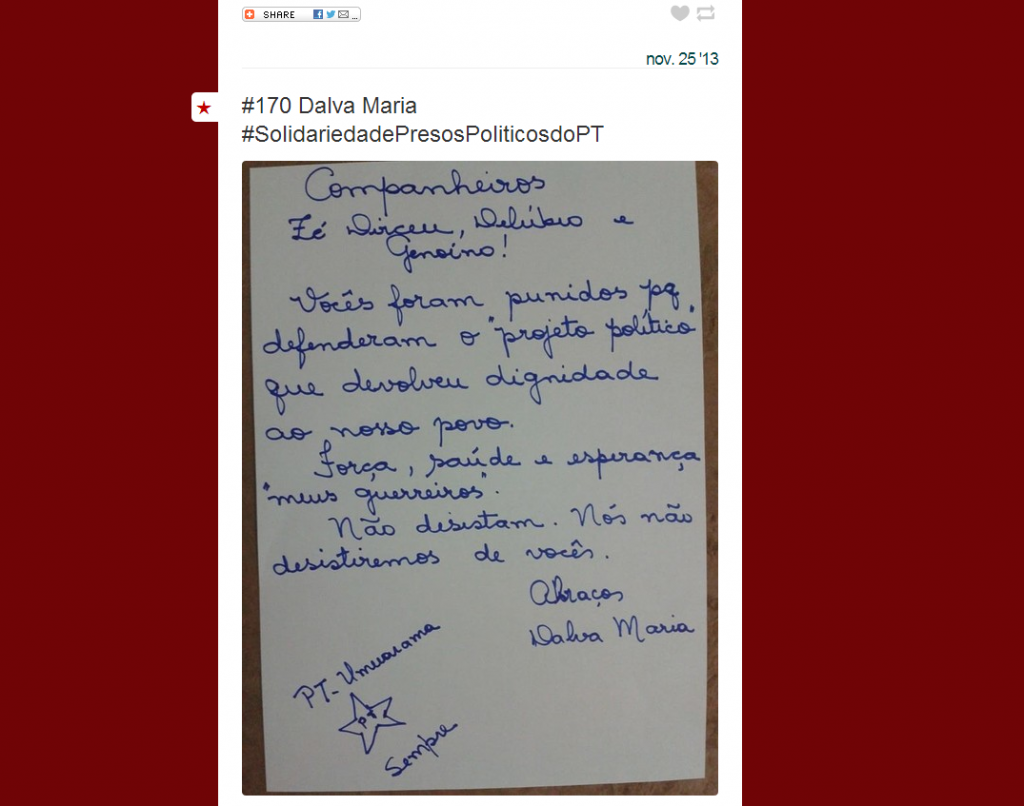 SHARE
nov. 25 '13
#170 Dalva Maria
#SolidariedadePresosPoliticosdoPT
Companheiros
Zé Dirceu, Delúbio e
Genoíno!
Vocês foram punidos pq
defenderam o "projeto político"
que devolveu dignidade
ao nosso povo.
Força, saúde e esperança
"meus guerreiros".
Não desistam. Nós não
desistiremos de vocês.
Abraços
Dalva Maria
PT-Umuarama
PT
Sempre